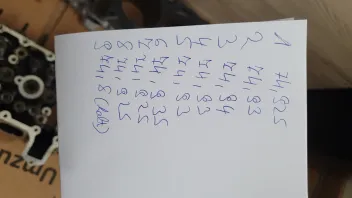 1 74,925
2 74,93
3 74,94
4 74,93
5 74,93
6 74,935
7 74,925
8 74,925
Umzu